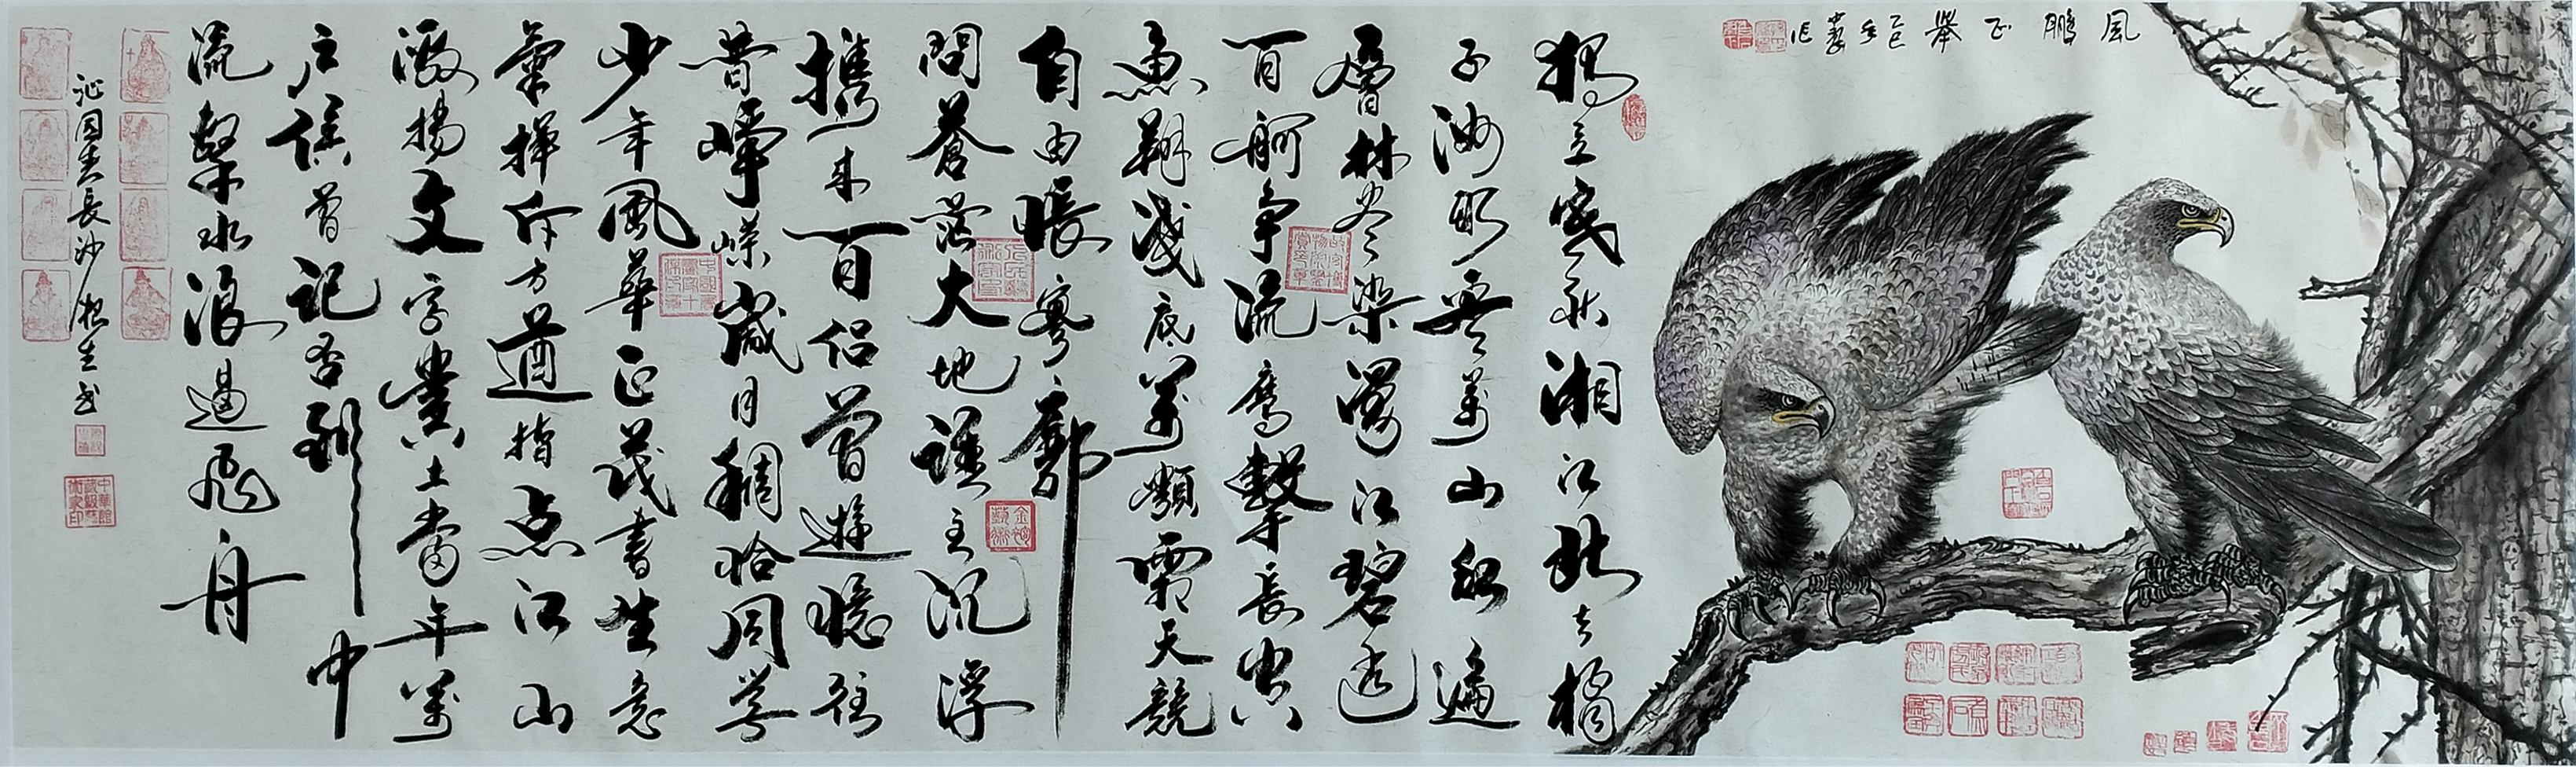 風鵬正舉
獨立寒秋湘江北去橘
子洲頭看萬山紅遍
層林尽染漫江碧透
百舸争流鷹擊長空
魚翔淺底萬類霜天競
自由悵寥廓
問蒼茫大地誰主沉浮
携来百侣曾遊憶往
昔崢嶸歲月稠恰同學
少年風華正茂書生意
氣揮斥方遒指点江山
激揚文字糞土當年萬
户侯曾記否到中
流擊水浪遏飛舟
沁園春長沙
中華館藏級藝術家印